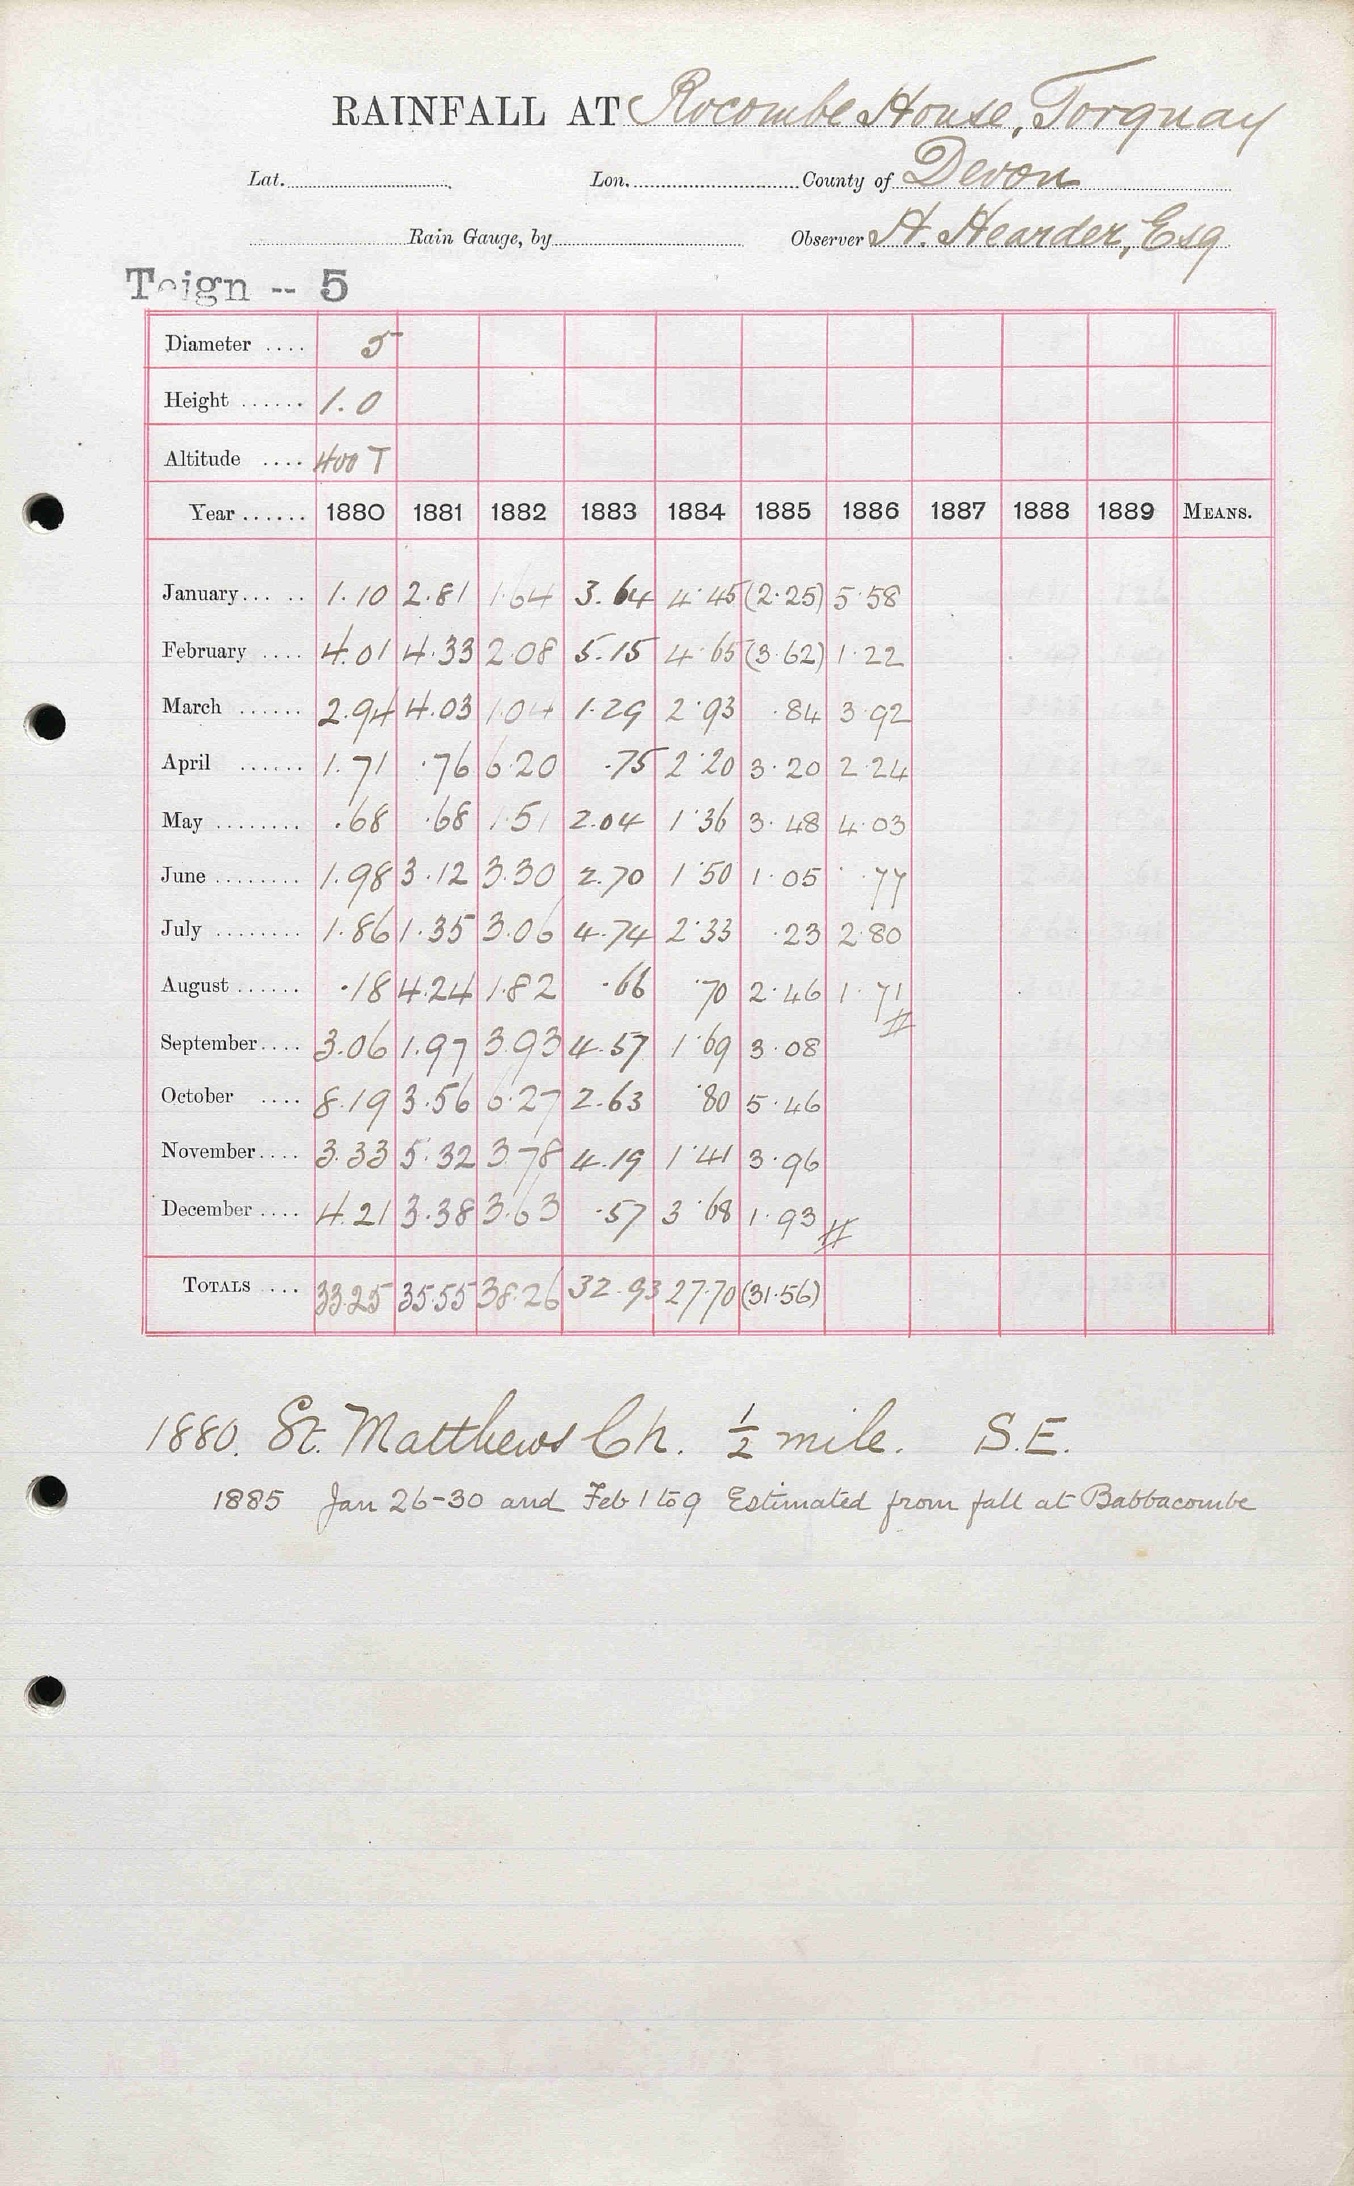 RAINFALL AT Rocombe House, Torquay
Lat. Lon. County of Devon
Rain Gauge, by Observer H. Hearder, Esq
Teign -- 5
Diameter .... 5
Height ...... 1.0
Altitude .... 400 T
Year ...... 1880 1881 1882 1883 1884 1885 1886 1887 1888 1889 MEANS.
January ... .. 1.10 2.81 1.64 3.64 4.45 (2.25) 5.58
February .... 4.01 4.33 2.08 5.15 4.65 (3.62) 1.22
March ...... 2.94 4.03 1.04 1.29 2.93 .84 3.92
April ...... 1.71 .76 6.20 .75 2.20 3.20 2.24
May ........ .68 .68 1.51 2.04 1.36 3.48 4.03
June ........ 1.98 3.12 3.30 2.70 1.50 1.05 .77
July ........ 1.86 1.35 3.06 4.74 2.33 .23 2.80
August ...... .18 4.24 1.82 .66 .70 2.46 1.71
September .... 3.06 1.97 3.93 4.57 1.69 3.08
October .... 8.19 3.56 6.27 2.63 .80 5.46
November .... 3.33 5.32 3.78 4.19 1.41 3.96
December .... 4.21 3.38 3.63 .57 3.68 1.93
TOTALS .... 33.25 35.55 38.26 32.93 27.70 (31.56)
1880. St. Matthews Ch. ½ mile. S.E.
1885 Jan 26-30 and Feb 1 to 9 Estimated from fall at Babbacombe